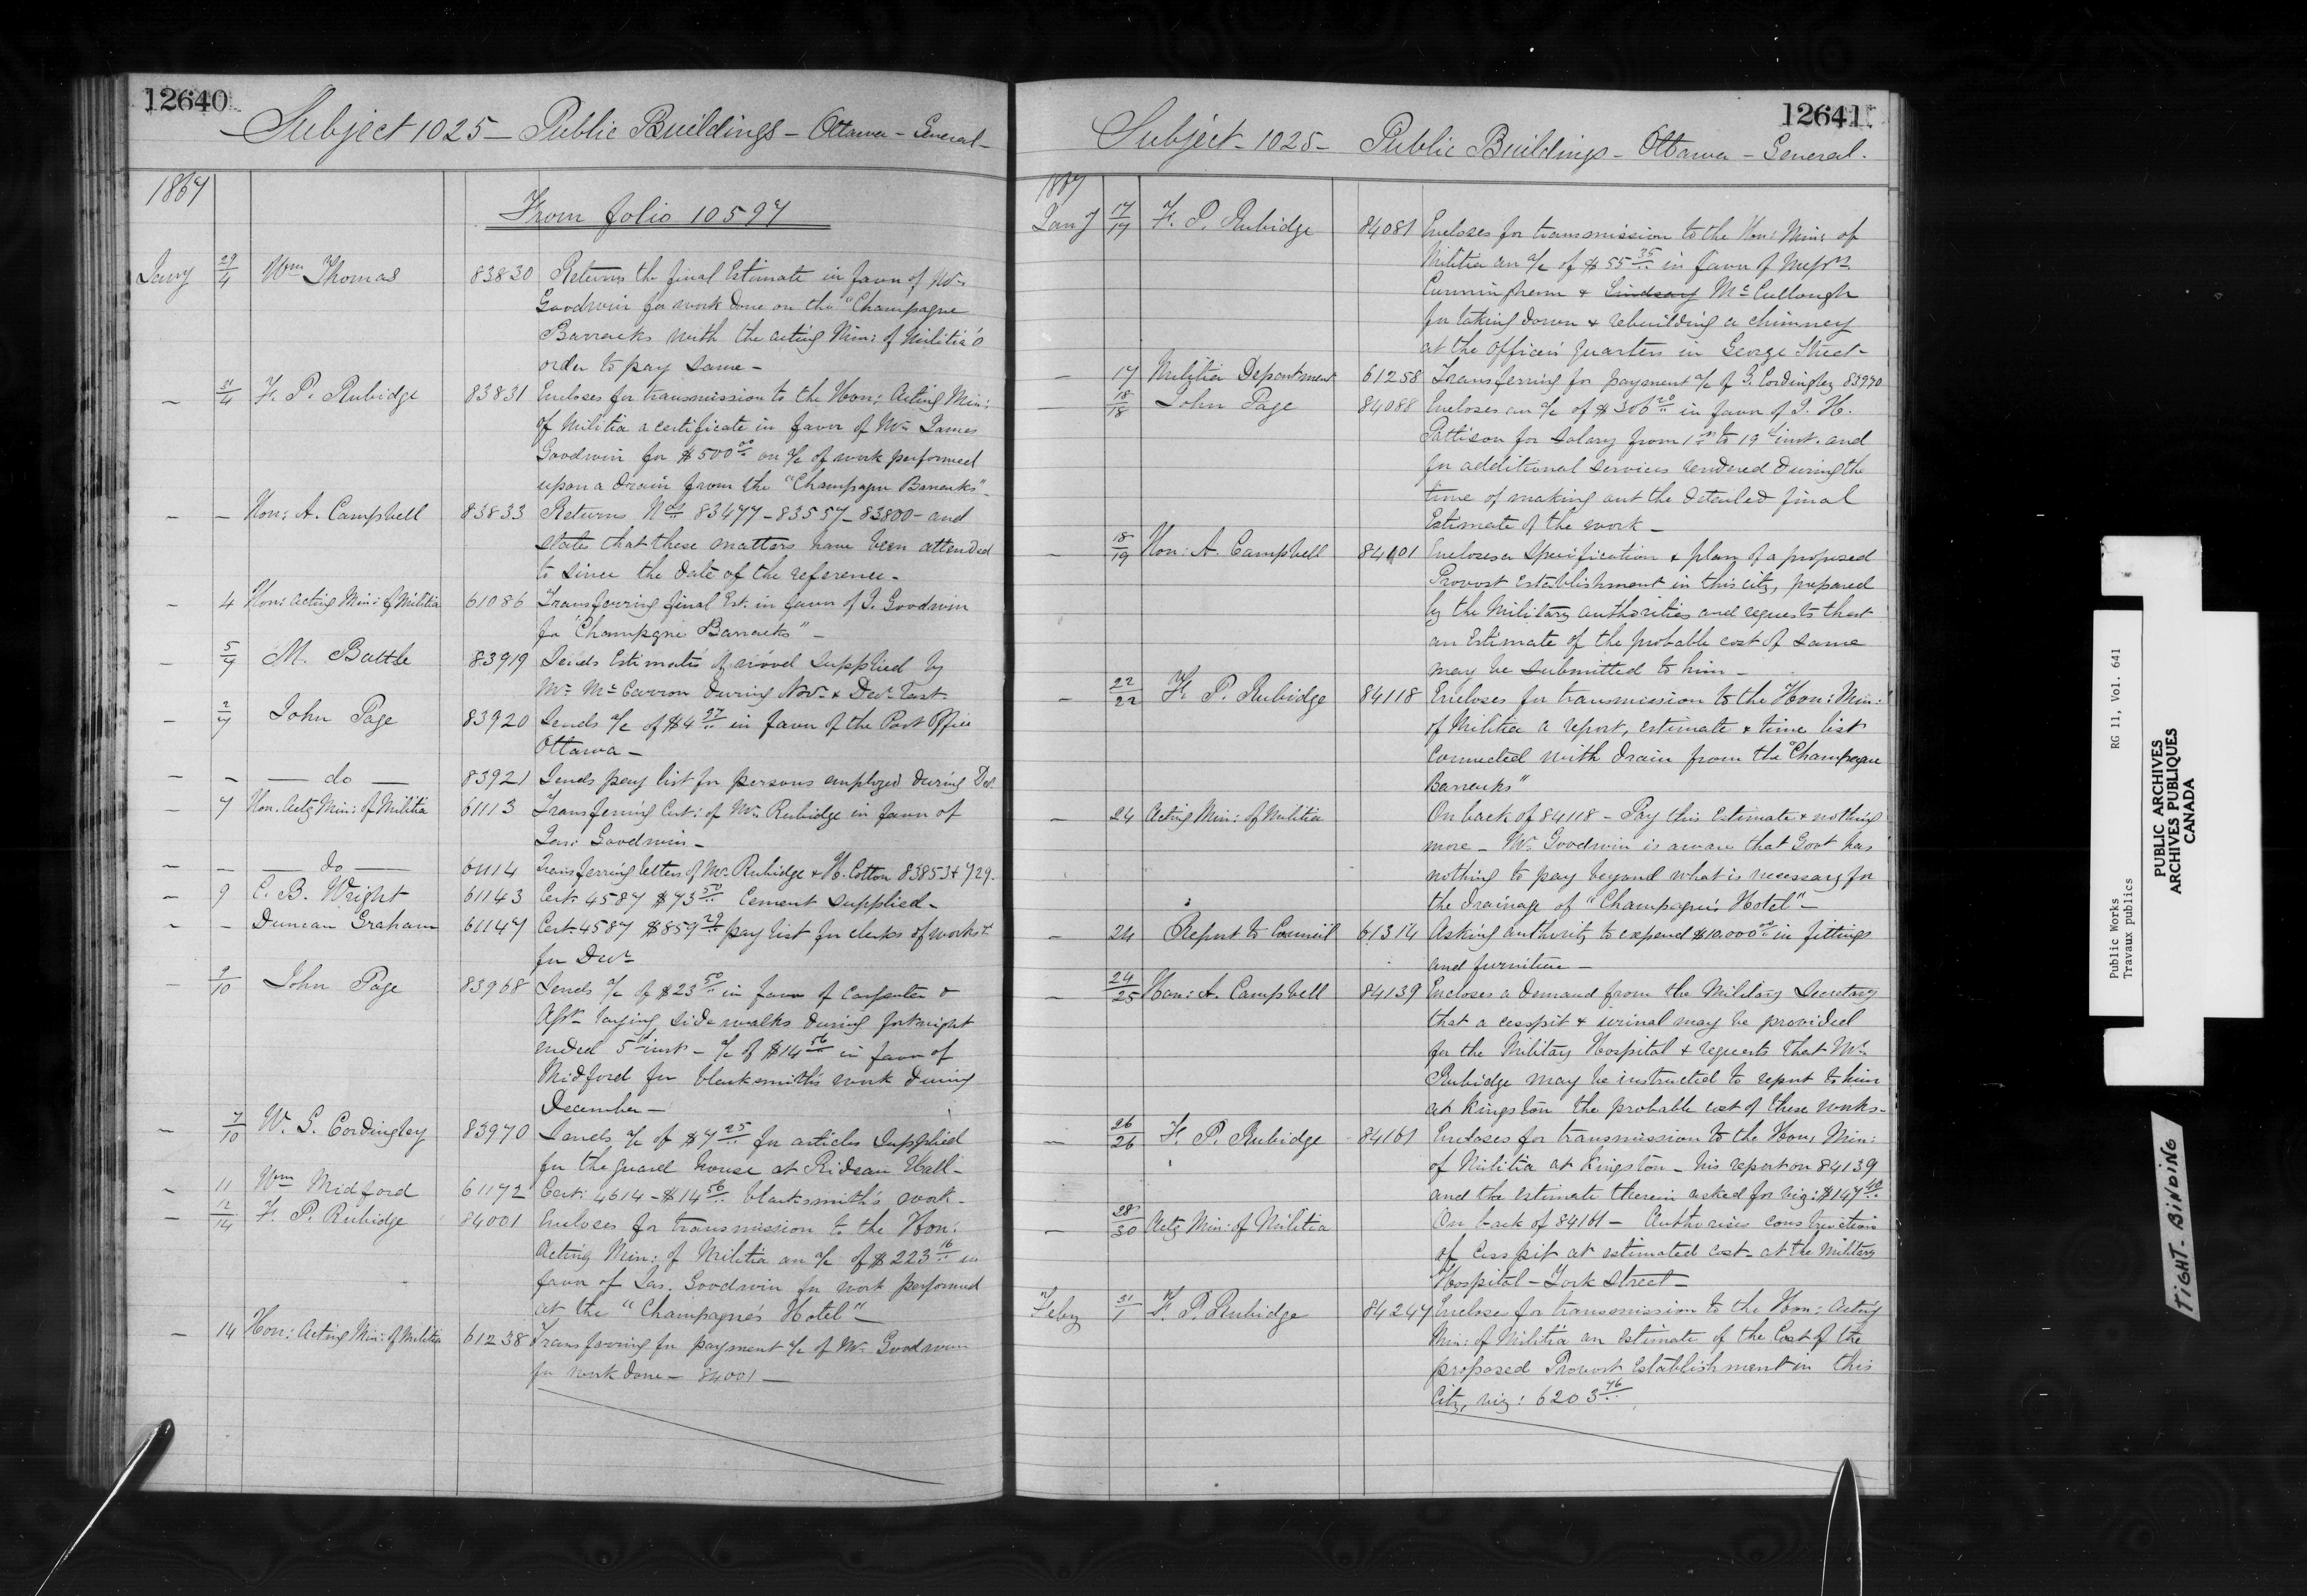 12640
Subject 1025 – Public Buildings – Ottawa – General –
1867
From folio 10597
Jany 29/4 Wm Thomas 83830 Returns the final Estimate in favor of Mr
Goodwin for work done on the "Champagne
Barracks with the acting Min: of Militia's
order to pay same –
– 31/4 F. P. Rubidge 83831 Encloses for transmission to the Hon: Acting Min:
of Militia a certificate in favor of Mr James
Goodwin for $500 00 on a/c of work performed
upon a drain from the "Champagne Barracks" –
– – Hon: A. Campbell 83833 Returns Nos 83477 – 83557 – 83800 – and
states that these matters have been attended
to since the date of the reference –
– 4 Hon: Acting Min: of Militia 61086 Transferring final Est. in favor of J. Goodwin
for "Champagne Barracks" –
– 5/7 M. Battle 83919 Sends Estimates of wood supplied by
Mr McCarron during Nov. & Decr last
– 2/7 John Page 83920 Sends a/c of $4 97 in favor of the Post Office
Ottawa –
– – do – 83921 Sends pay list for persons employed during Dec.
– 7 Hon. Actg Min: of Militia 61113 Transferring Cert: of Mr Rubidge in favor of
Jas: Goodwin –
– – do – 61114 Transferring letters of Mr Rubidge & H. Cotton 83853 & 729 –
– 9 C. B. Wright 61143 Cert. 4587 $73 50 Cement supplied –
– – Duncan Graham 61147 Cert. 4587 $859 29 pay list for clerks of works &
for Decr
– 9/10 John Page 83968 Sends a/c of $23 50 in favor of Carpenter &
Asst laying side walks during fortnight
ended 5th inst – a/c of $14 56 in favor of
Midford for blacksmith's work during
December –
– 7/10 W. G. Cordingley 83970 Sends a/c of $7 25 for articles supplied
for the guard house at Rideau Hall –
– 11 Wm Midford 61172 Cert: 4614 – $14 56 blacksmith's work –
– 12/14 F. P. Rubidge 84001 Encloses for transmission to the Hon:
Acting Min: of Militia an a/c of $223 16 in
favor of Jas. Goodwin for work performed
at the "Champagne's Hotel" –
– 14 Hon: Acting Min: of Militia 61238 Transferring for payment a/c of Mr Goodwin
for work done – 84001 –
12641
Subject – 1025 – Public Buildings – Ottawa – General.
1867
Jany 17/17 F. P. Rubidge 84081 Encloses for transmission to the Hon: Min: of
Militia an a/c of $55 35 in favor of Messrs
Cunningham & Lindsay McCullough
for taking down & rebuilding a chimney
at the Officers quarters in George Street –
– 17 Militia Department 61258 Transferring for payment a/c of G. Cordingley 83970
– 18/18 John Page 84088 Encloses an a/c of $306 20 in favor of J. H.
Pattison for salary from 1st to 19th inst. and
for additional services rendered during the
time of making out the detailed final
Estimate of the work –
– 18/19 Hon: A. Campbell 84101 Encloses a Specification & plan of a proposed
Provost Establishment in this city, prepared
by the Military authorities and requests that
an Estimate of the probable cost of same
may be submitted to him –
– 22/22 F. P. Rubidge 84118 Encloses for transmission to the Hon: Min:
of Militia a report, estimate & time list
connected with drain from the "Champagne
Barracks"
– 24 Acting Min: of Militia On back of 84118 – Pay this Estimate & nothing
more – Mr Goodwin is aware that Govt has
nothing to pay beyond what is necessary for
the drainage of "Champagne's Hotel" –
– 24 Report to Council 61314 Asking authority to expend $10.000 00 in fittings
and furniture –
– 24/25 Hon: A. Campbell 84139 Encloses a demand from the Military Secretary
that a cesspit & urinal may be provided
for the Military Hospital & requests that Mr
Rubidge may be instructed to report to him
at Kingston the probable cost of these works –
– 26/26 F. P. Rubidge 84161 Encloses for transmission to the Hon: Min:
of Militia at Kingston – his report on 84139
and the estimate therein asked for viz: $147 40
– 28/30 Actg Min: of Militia On back of 84161 – Authorises construction
of Cesspit at estimated cost at the Military
Hospital – York Street –
Feby 31/1 F. P. Rubidge 84247 Enclose for transmission to the Hon: Acting
Min: of Militia an estimate of the Cost of the
proposed Provost Establishment in this
City, viz: 6203 76
Public Works RG 11, Vol. 641
Travaux publics
PUBLIC ARCHIVES
ARCHIVES PUBLIQUES
CANADA
TIGHT BINDING